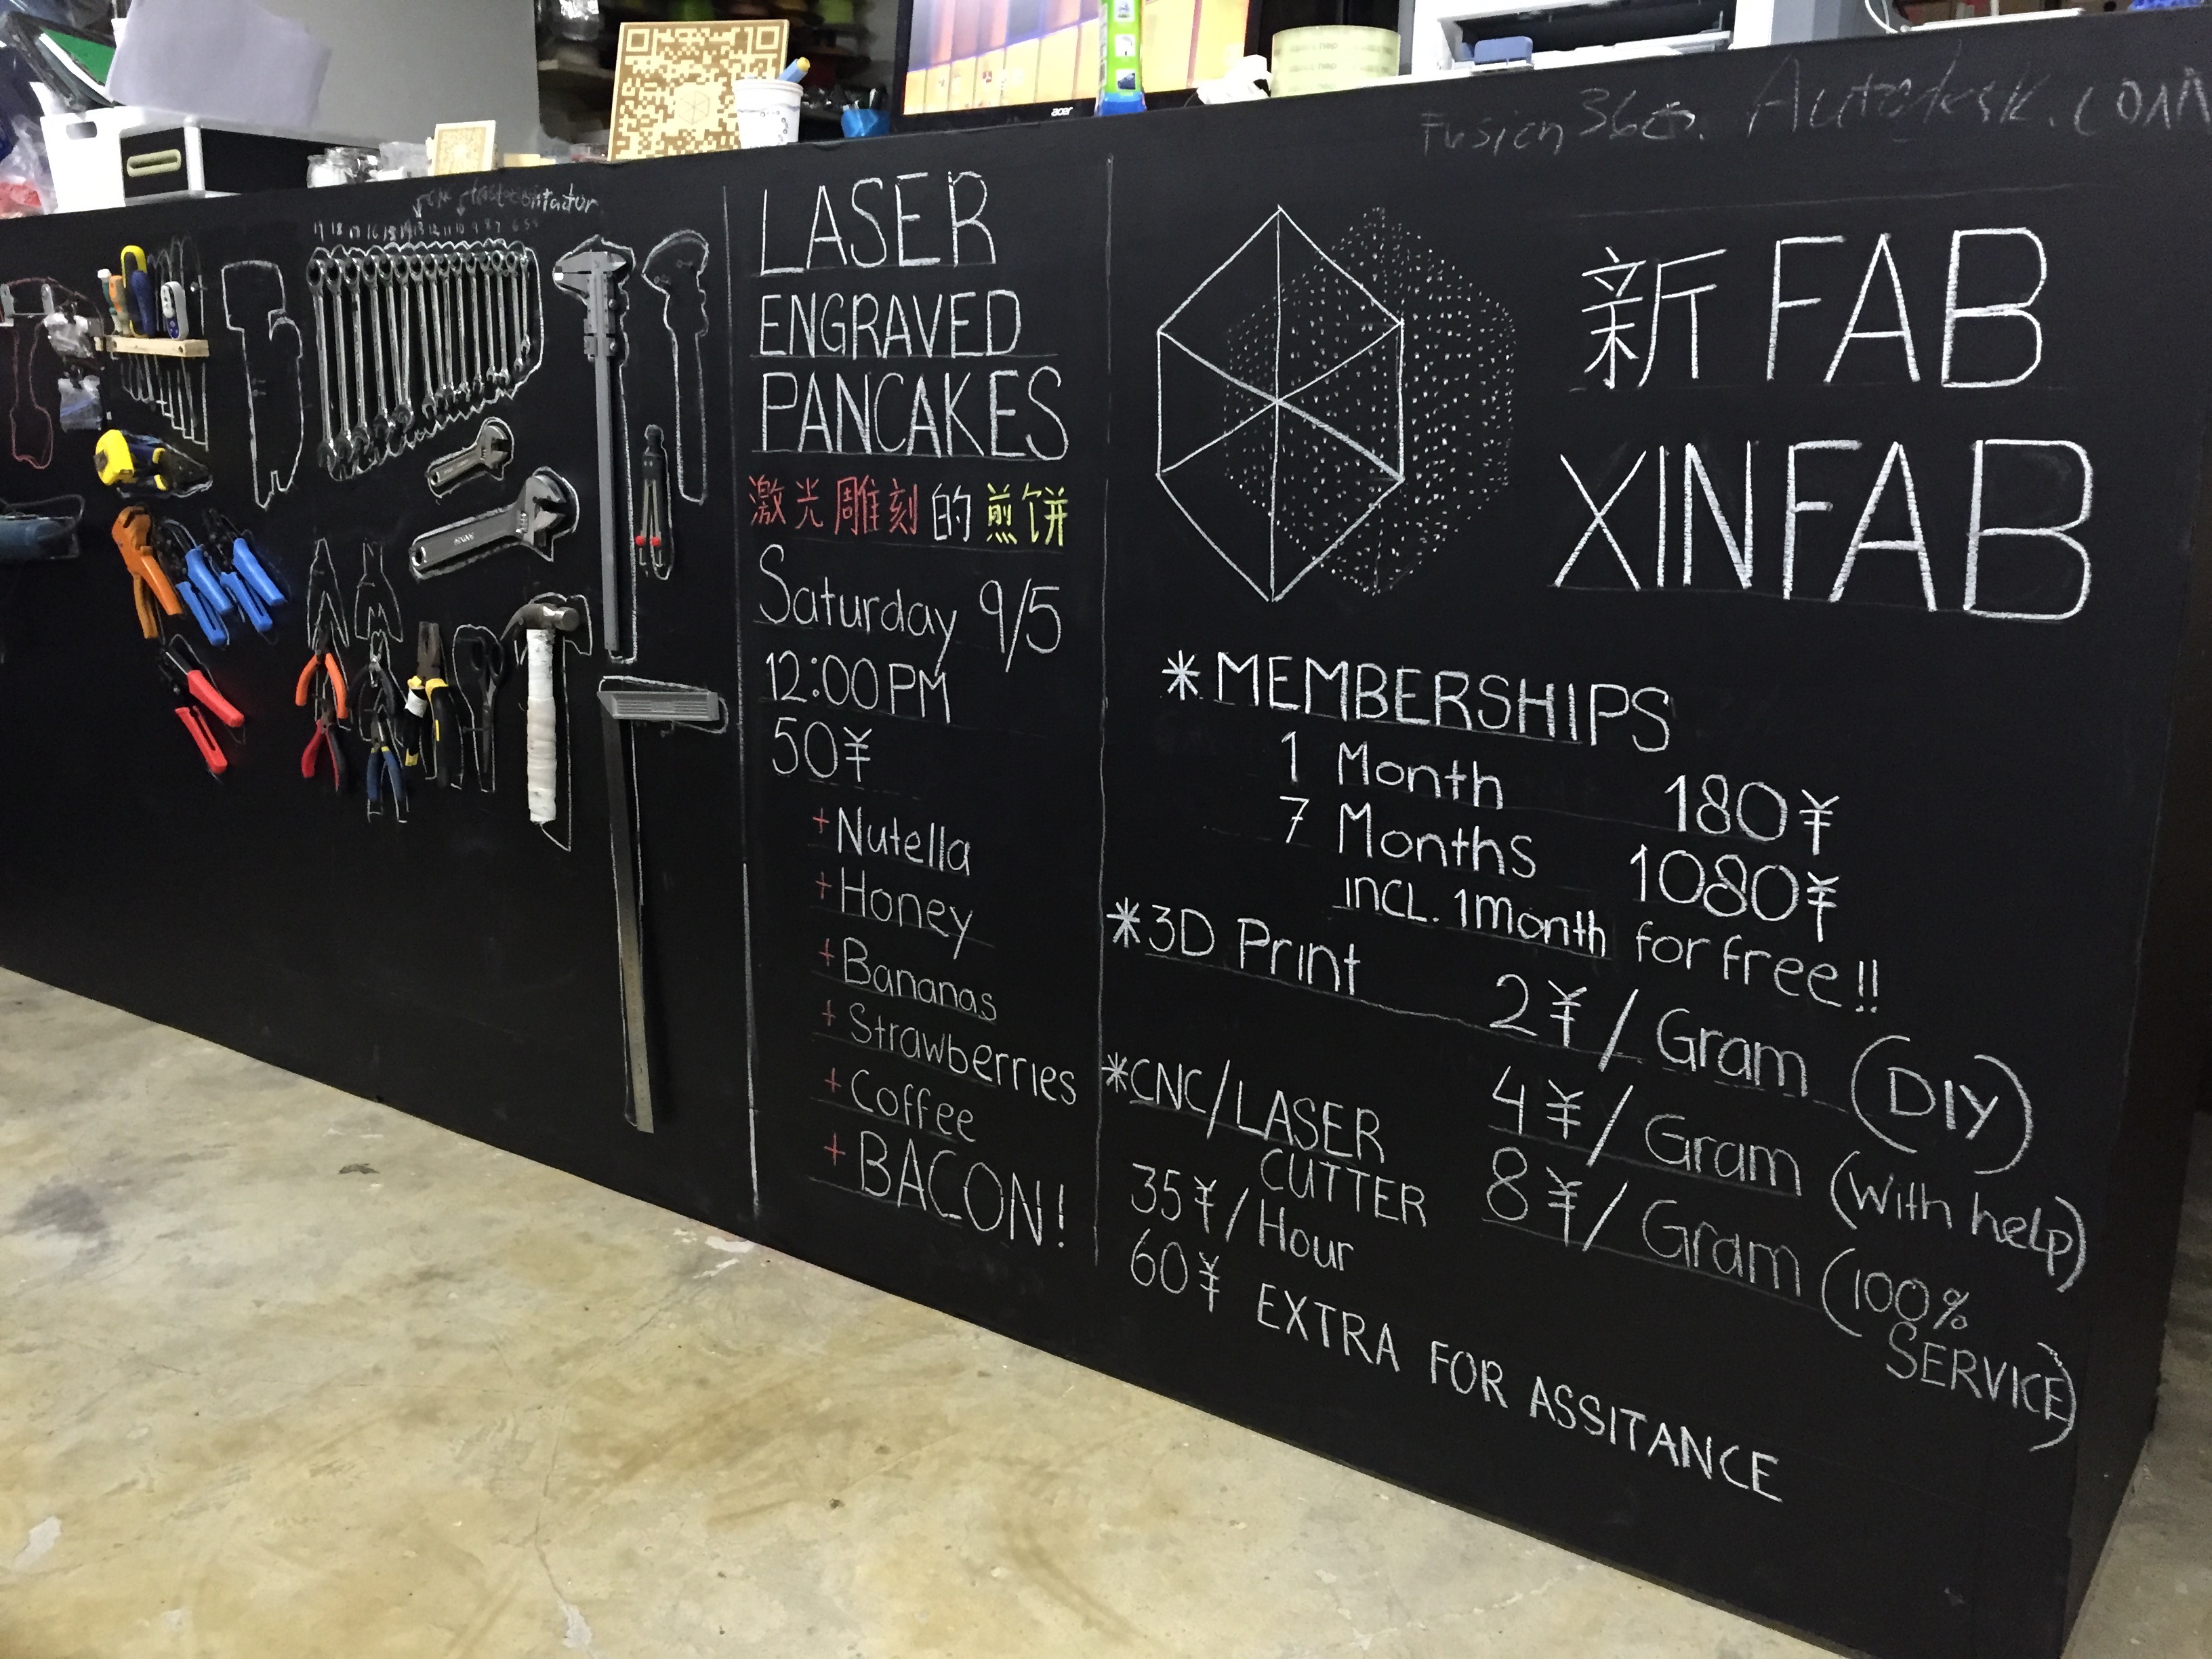 acer
Fusion 360. Autodesk.com
LASER
ENGRAVED
PANCAKES
激光雕刻的煎饼
Saturday 9/5
12:00PM
50¥
+Nutella
+Honey
+Bananas
+Strawberries
+Coffee
+BACON!
新FAB
XINFAB
*MEMBERSHIPS
1 Month 180¥
7 Months 1080¥
INCL. 1 month for free!!
*3D Print
2¥/Gram (DIY)
4¥/Gram (With help)
8¥/Gram (100%
SERVICE)
*CNC/LASER
CUTTER
35¥/Hour
60¥ EXTRA FOR ASSITANCE